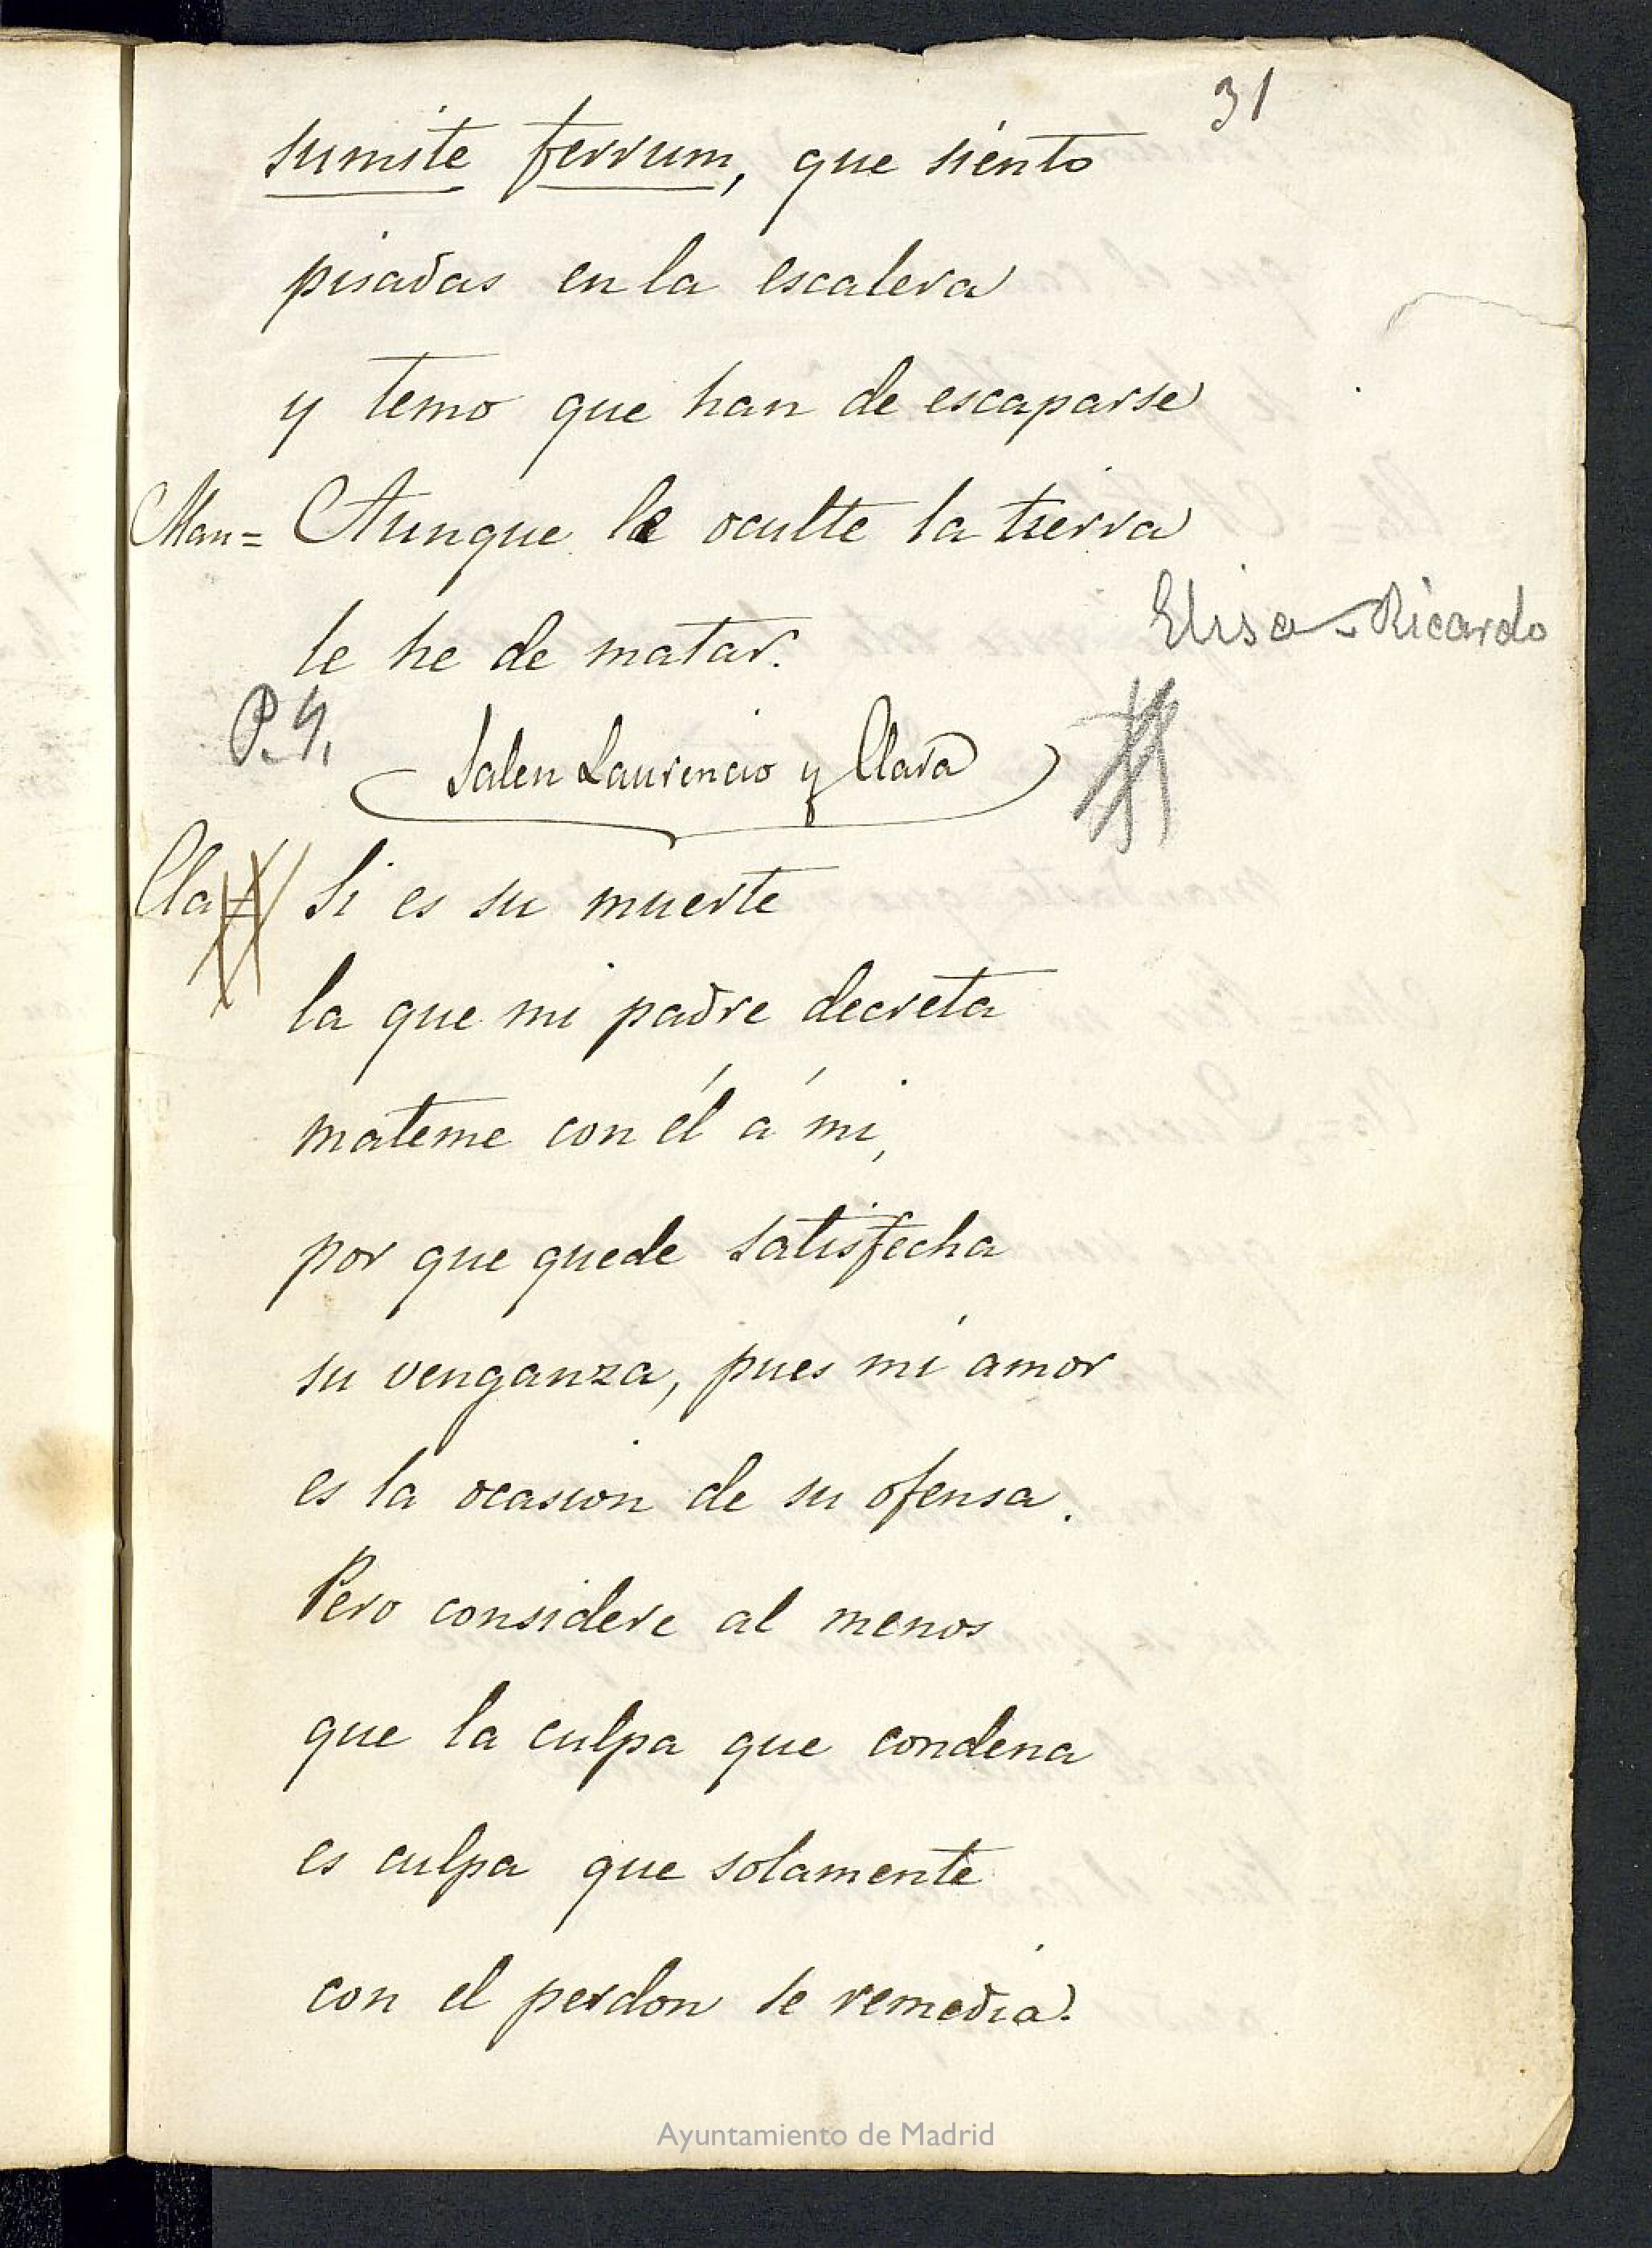 31
sumite ferrum, que siento
pisadas en la escalera
y temo que han de escaparse
Man= Aunque le oculte la tierra
le he de matar.
Elisa - Ricardo
P. Y.
Salen Laurencio y Clara
Cla= Si es su muerte
la que mi padre decreta
mateme con él á mi,
por que quede satisfecha
su venganza, pues mi amor
es la ocasion de su ofensa.
Pero considere al menos
que la culpa que condena
es culpa que solamente
con el perdon se remedia.
Ayuntamiento de Madrid